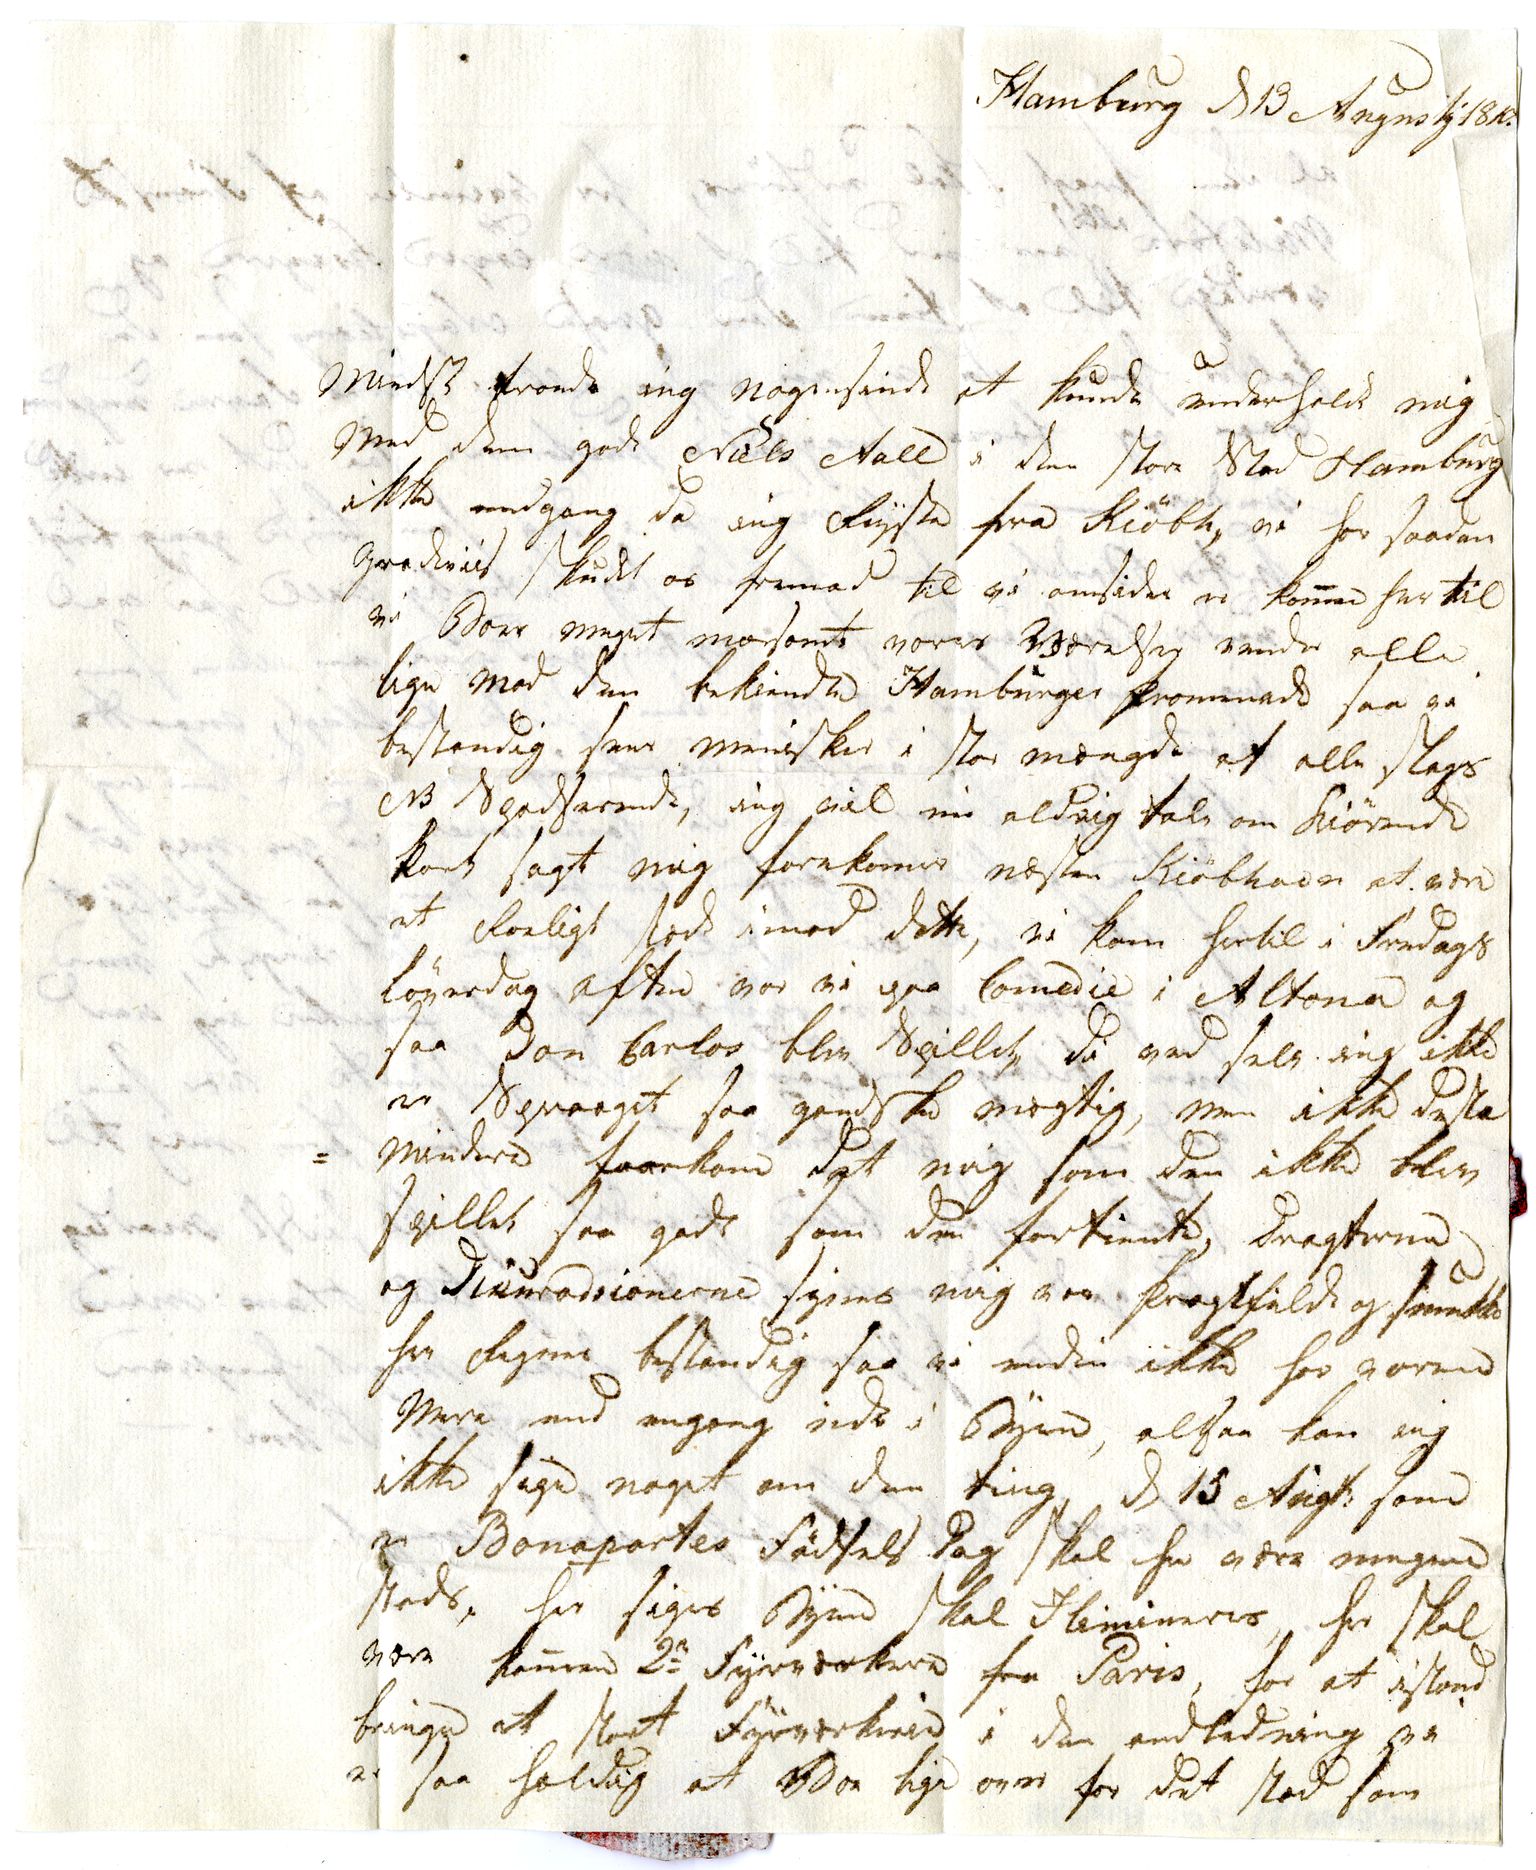 Hamburg d 13 Augustij 18
Mindst troede ieg nogensinde at kunde underholde mig
med dem gode Niels Aall i den store Stad Hamburg
ikke engang da ieg Reyste fra Kiöbh, vi har saadan
gradeviis skudt os fremad til vi omsider er kommen her til
vi Boer meget morsomt vores Værelser vender alle
lige mod den bekiendte Hamburger promenade saa vi
bestandig seer menisker i stor mængde af alle slags
NB Spadserende, ieg vil nu aldrig tale om Kiörende
kort sagt mig forekomer næsten Kiöbhavn at være
et Roeligt stæd imod dette, vi kom hertil i Fredags
Löverdag aften var vi paa Comedie i Altona og
saa Don Carlos blev Spillet, du ved selv ieg ikke
er Sproaget saa gandske mægtig, men ikke desto
mindre forekom det mig som den ikke blev
spillet saa godt som den fortiente, Dragterne
og Dicurasionerne synes mig var Pragtfulde og smukke
her Regner bestandig saa vi endnu ikke har været
mere end engang ude i Byen, altsaa kan ieg
ikke sige noget om den ting, d 15 Augt: som
er Bonapartes Födsels Dag skal her være megen
stads, her siges Byen skal Ilimineres, her skal
være kommen 2de Fyrverkere fra Paris, for at istand
bringe et stort Fyrverkerie i den andledning vi
er saa heldig at Boe lige over for det stæd som